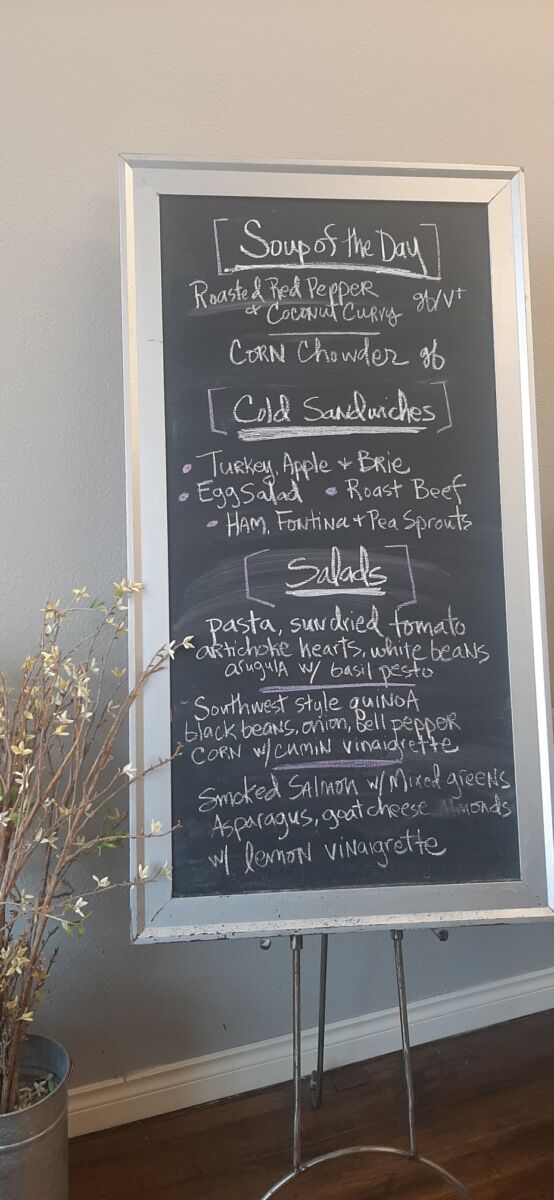 Soup of the Day
Roasted Red Pepper gf/V+
+ Coconut Curry
Corn Chowder gf
Cold Sandwiches
• Turkey, Apple + Brie
• Egg Salad • Roast Beef
• Ham, Fontina + Pea Sprouts
Salads
pasta, sundried tomato
artichoke hearts, white beans
arugula w/ basil pesto
Southwest style quinoa
black beans, onion, Bell pepper
corn w/cumin vinaigrette
Smoked Salmon w/ Mixed greens
Asparagus, goat cheese Almonds
w/ lemon vinaigrette